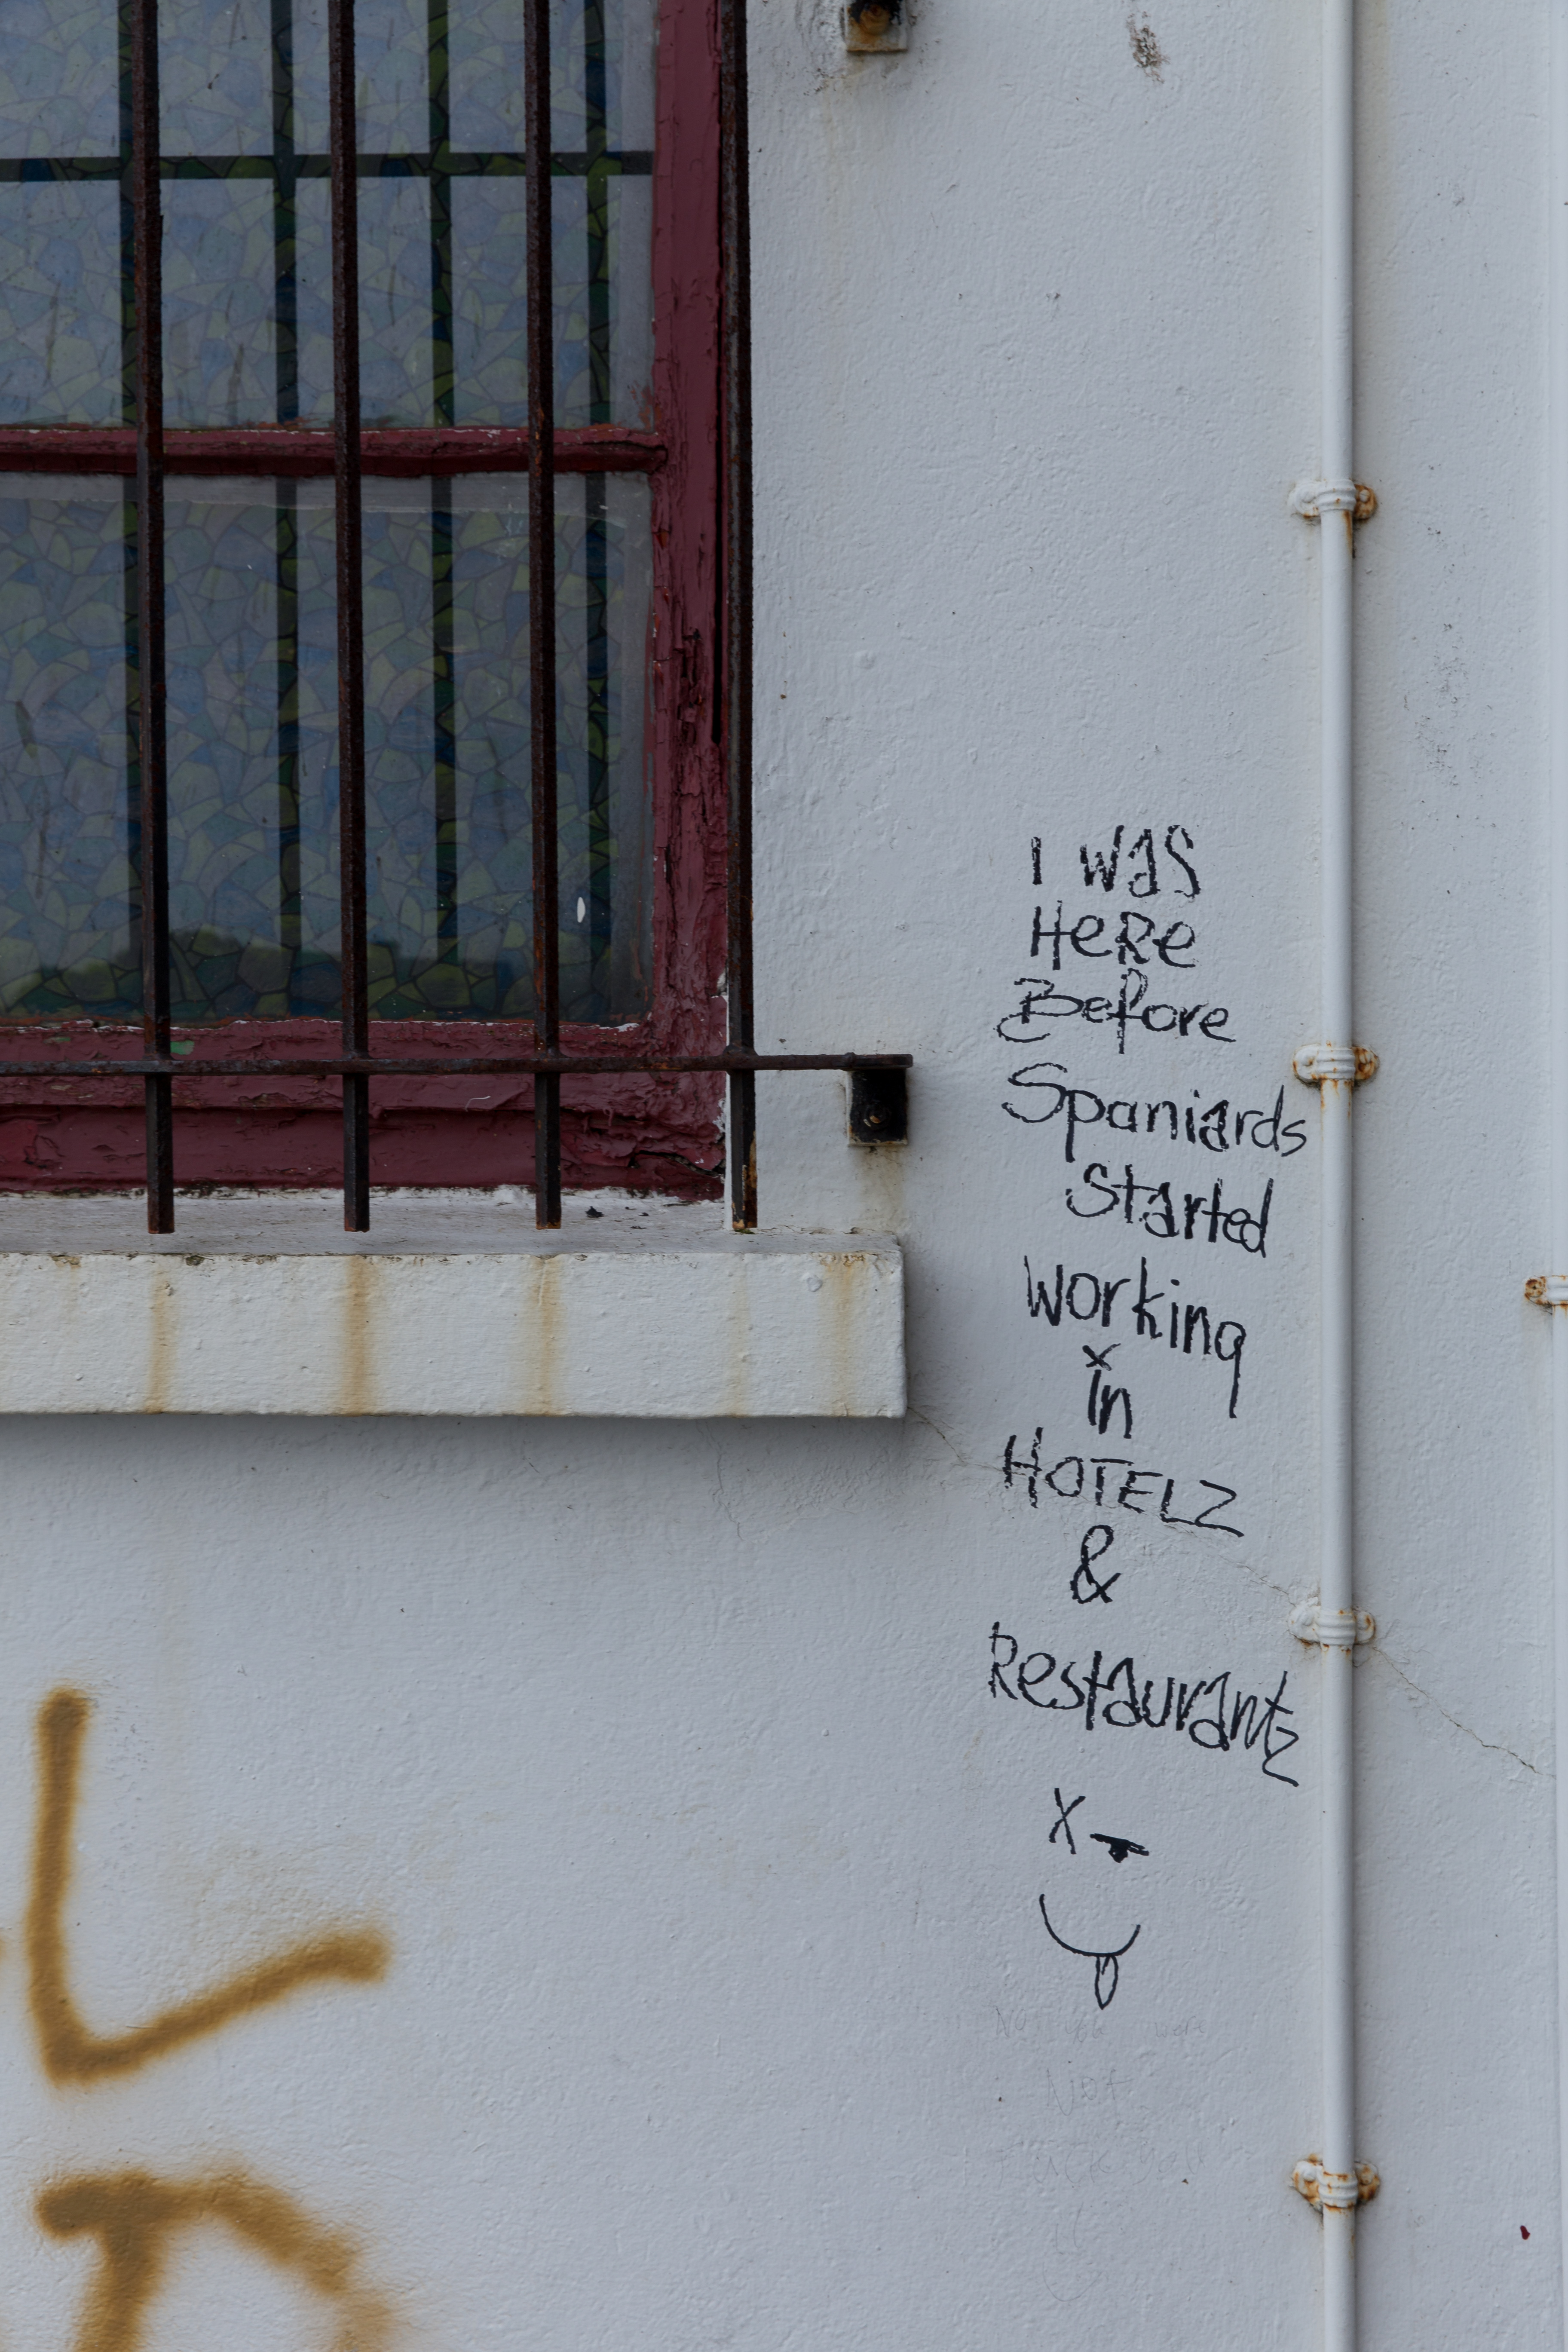 I WAS
HeRe
Before
Spaniards
Started
Working
in
HOTELZ
&
Restaurantz
Not